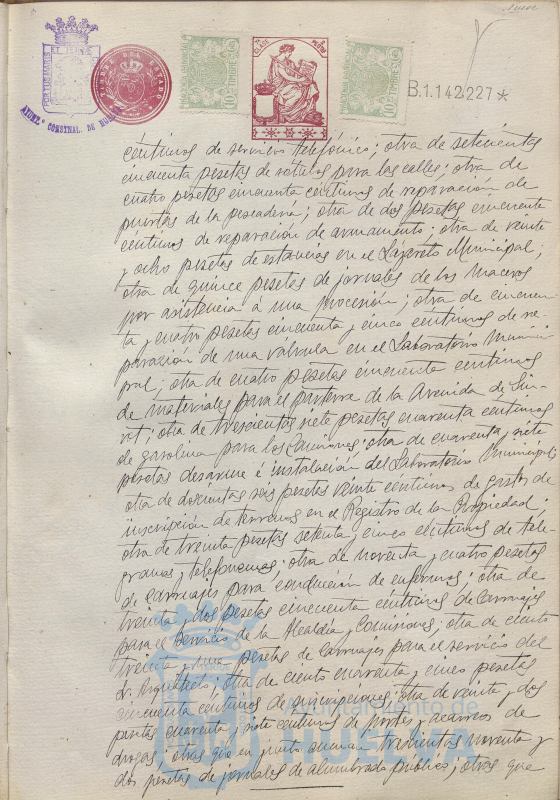 AYUNT.º CONSTNAL. DE HUELVA
TIMBRE DEL ESTADO
B.1.142.227*
céntimos de servicio telefónico; otra de setecientas
cincuenta pesetas de rótulos para las calles; otra de
cuatro pesetas cincuenta céntimos de reparación de
puertas de la pescadería; otra de dos pesetas cincuenta
céntimos de reparación de armamento; otra de veinte
y ocho pesetas de estancias en el Lazareto Municipal;
otra de quince pesetas de jornales de los maceros
por asistencia á una procesión; otra de cincuen
ta y cuatro pesetas cincuenta y cinco céntimos de re-
paración de una válvula en el Laboratorio Munici
pal; otra de cuatro pesetas cincuenta céntimos
de materiales para el parterre de la Avenida de
otra de trescientas siete pesetas cuarenta céntimos
de gasolina para los Camiones; otra de cuarenta y siete
pesetas desarme é instalación del Laboratorio Municipal;
otra de doscientas seis pesetas veinte céntimos de gastos de
inscripción de terrenos en el Registro de la Propiedad;
otra de treinta pesetas setenta y cinco céntimos de tele
gramas y telefonemas; otra de noventa y cuatro pesetas
de carruajes para conducción de enfermos; otra de
treinta y dos pesetas cincuenta céntimos de Carruajes
para el servicio de la Alcaldía y Comisiones; otra de ciento
treinta y una pesetas de carruajes para el servicio del
Sr. Arquitecto; otra de ciento cuarenta y cinco pesetas
cincuenta céntimos de suscripciones; otra de veinte y dos
pesetas cuarenta y siete céntimos de portes y acarreos de
drogas; otras que en junto suman trescientas noventa y
dos pesetas de jornales de alumbrado público; otras que
Ayuntamiento de
HUELVA